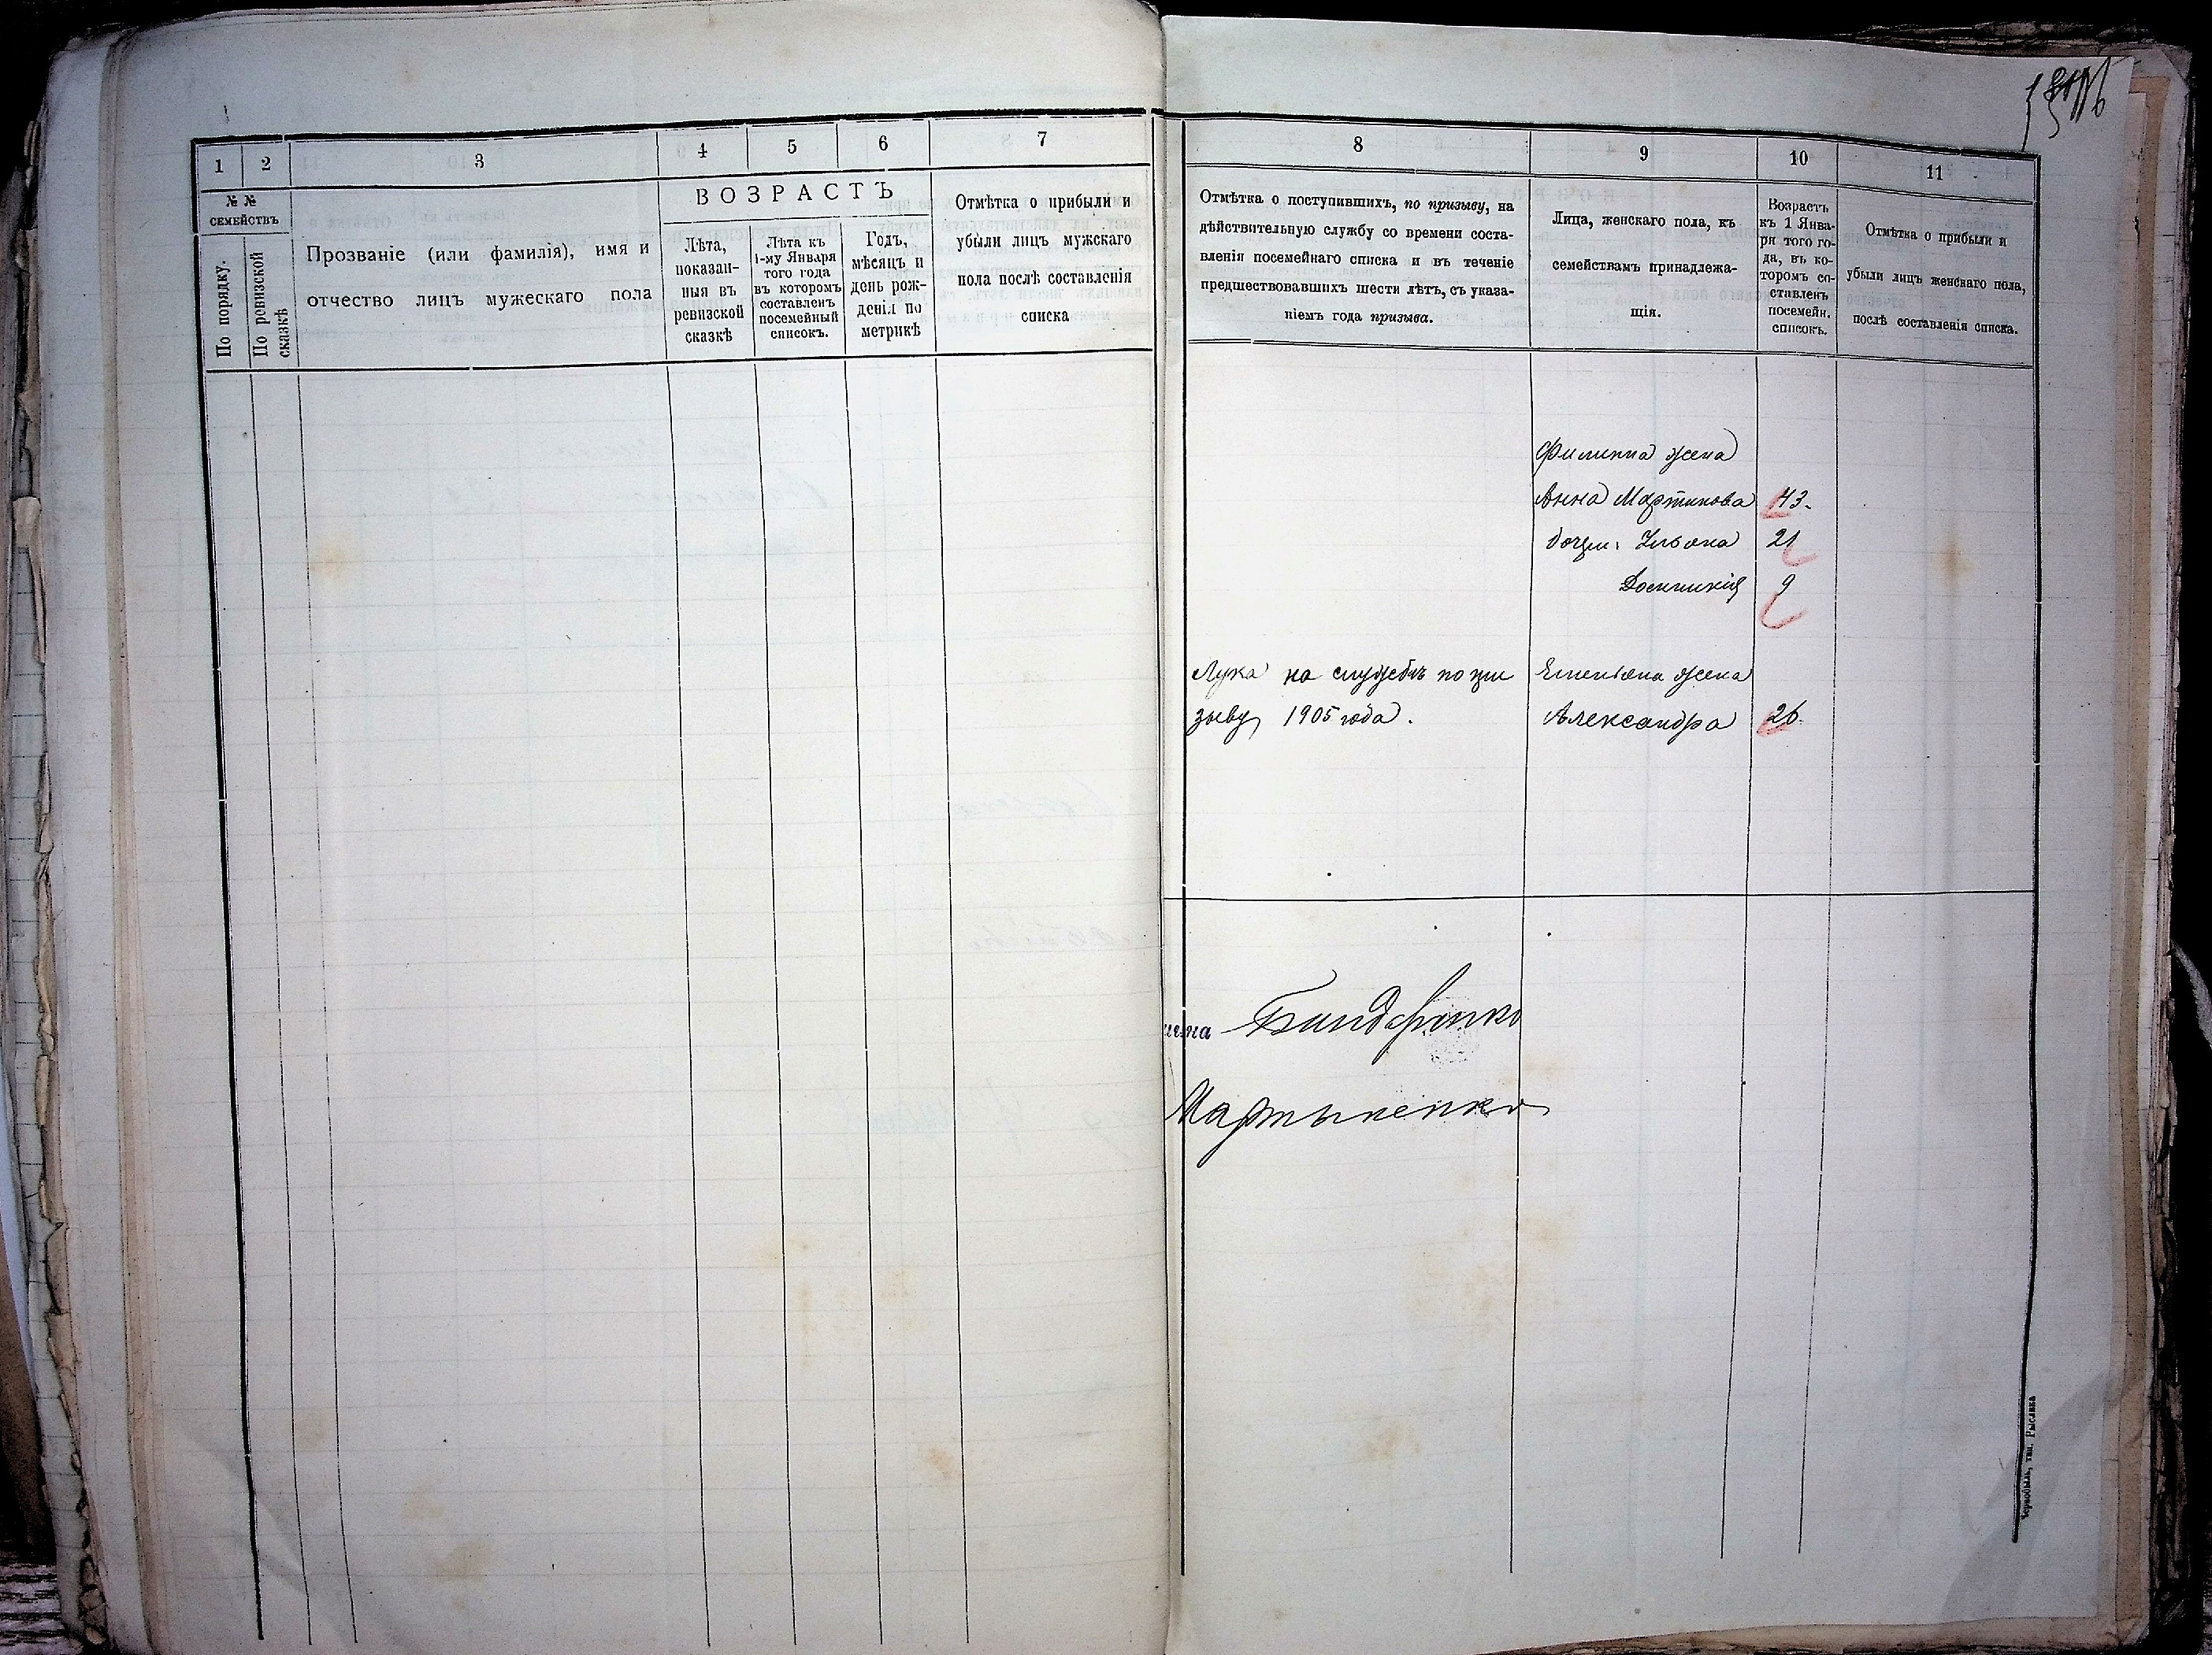 1 2 3 4 5 6 7
№ №
СЕМЕЙСТВЪ
По порядку.
По ревизской
сказкѣ
Прозваніе (или фамилія), имя и
отчество лицъ мужескаго пола
ВОЗРАСТЪ
Лѣта,
показан-
ныя въ
ревизской
сказкѣ
Лѣта къ
1-му Января
того года
въ которомъ
составленъ
посемейный
списокъ.
Годъ,
мѣсяцъ и
день рож-
денія по
метрикѣ
Отмѣтка о прибыли и
убыли лицъ мужскаго
пола послѣ составленія
списка
8 9 10 11
Отмѣтка о поступившихъ, по призыву, на
дѣйствительную службу со времени соста-
вленія посемейнаго списка и въ теченіе
предшествовавшихъ шести лѣтъ, съ указа-
ніемъ года призыва.
Лица, женскаго пола, къ
семействамъ принадлежа-
щія.
Возрастъ
къ 1 Янва-
ря того го-
да, въ ко-
торомъ со-
ставленъ
посемейн.
списокъ.
Отмѣтка о прибыли и
убыли лицъ женскаго пола,
послѣ составленія списка.
Филиппа жена
Анна Мартинова 43.
дочери: Ульяна 21
Домникія 9
Лука на службѣ по при
зыву 1905 года.
Емельяна жена
Александра 26.
Бондаренко
Мартыненко
Чернобыль, тип. Рыслвка